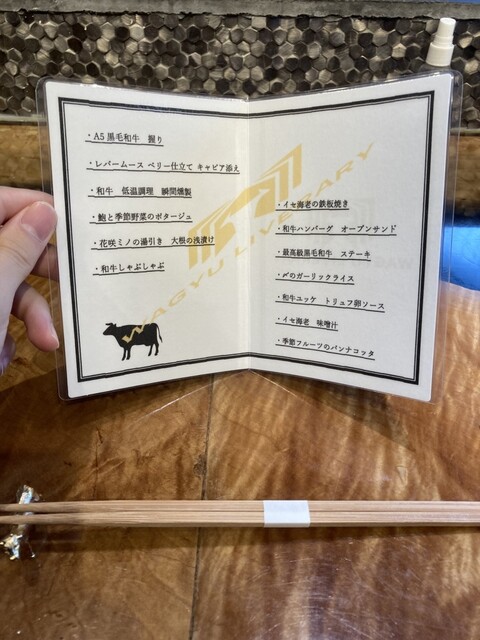 ・A5黒毛和牛　握り
・レバームース ベリー仕立て キャビア添え
・和牛　低温調理　瞬間燻製
・鮑と季節野菜のポタージュ
・花咲ミノの湯引き　大根の浅漬け
・和牛しゃぶしゃぶ
・イセ海老の鉄板焼き
・和牛ハンバーグ　オープンサンド
・最高級黒毛和牛　ステーキ
・〆のガーリックライス
・和牛ユッケ　トリュフ卵ソース
・イセ海老　味噌汁
・季節フルーツのパンナコッタ
WAGYU LIVERARY